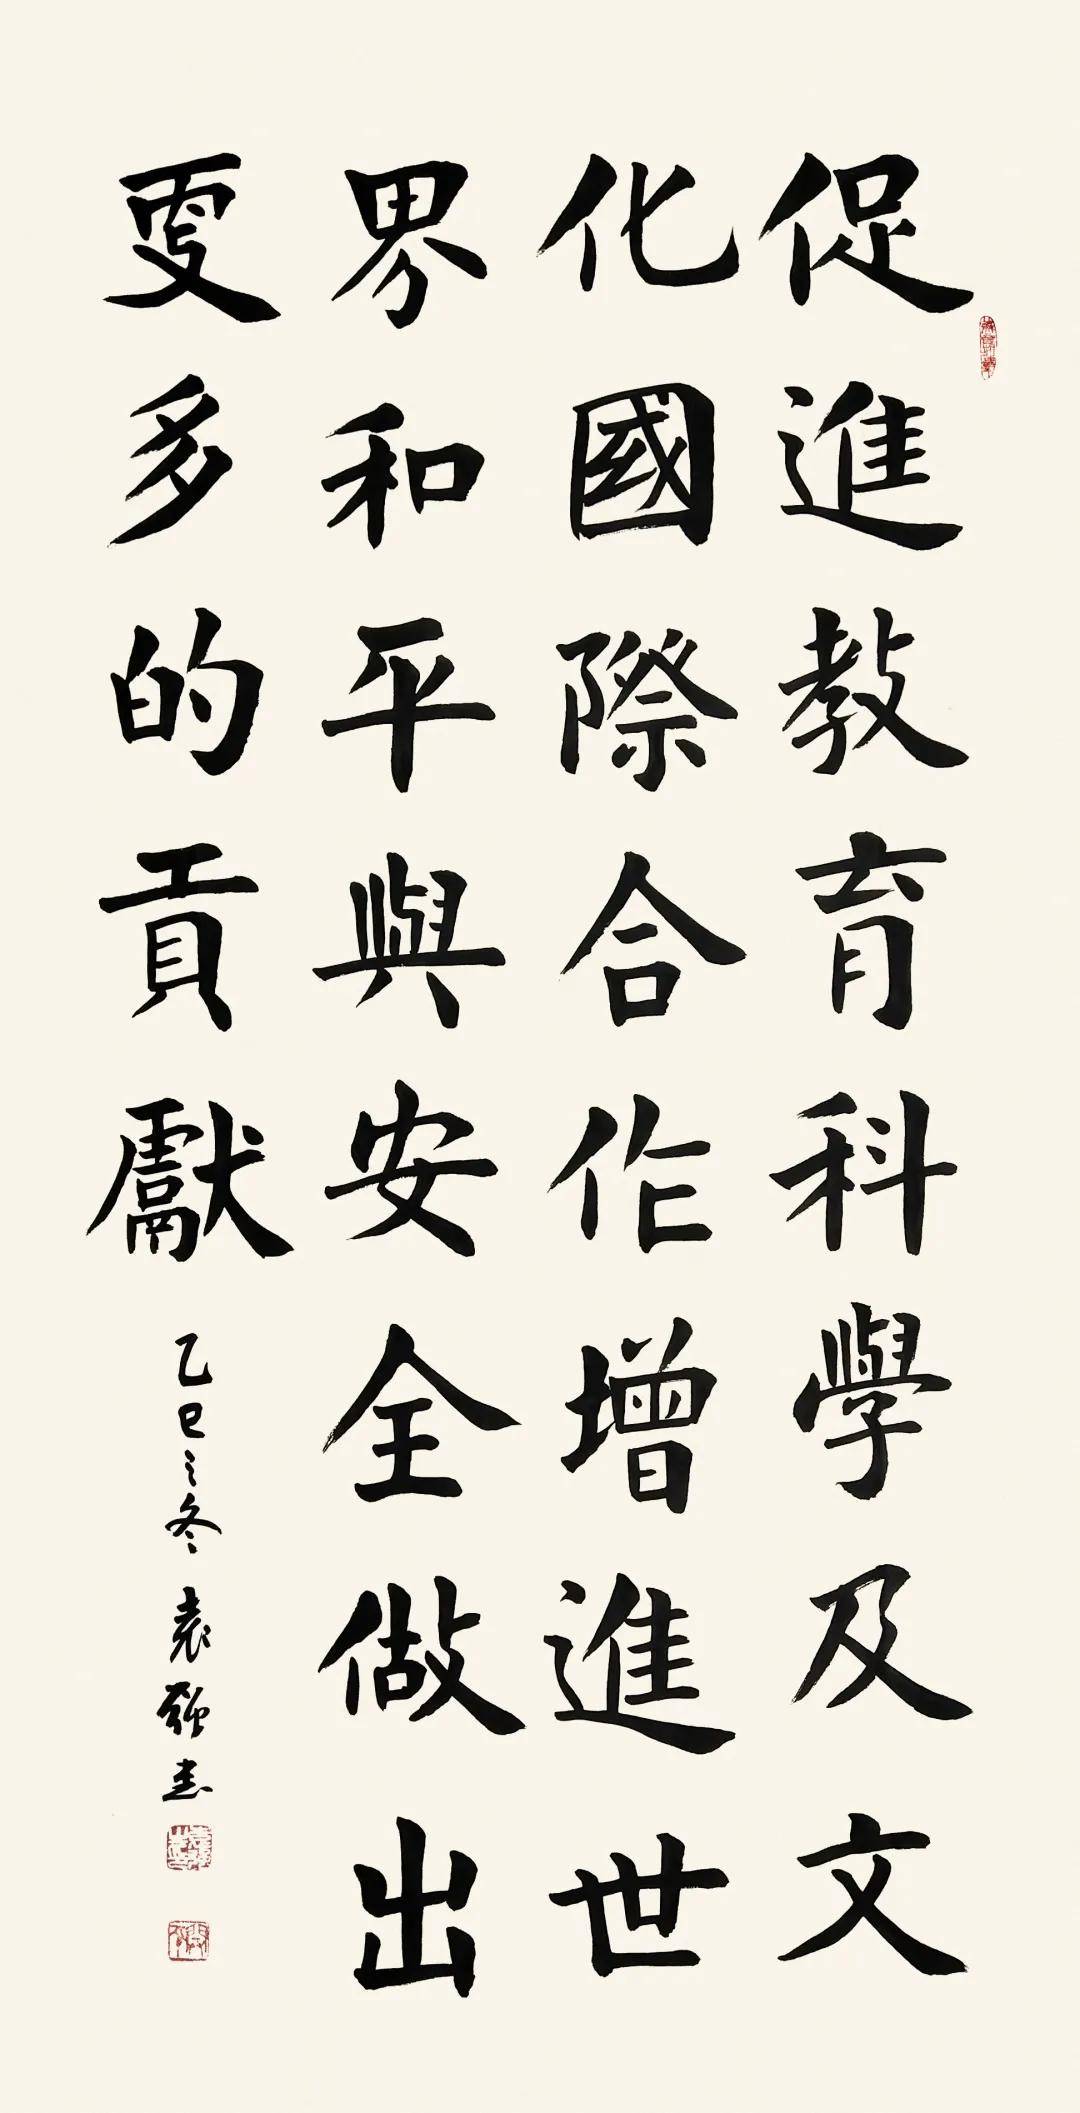 促進教育科學及文
化國際合作增進世
界和平與安全做出
更多的貢獻
乙巳之冬 袁強書